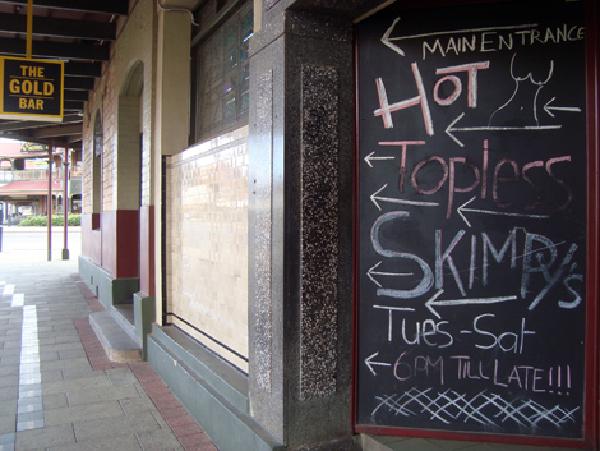 THE
GOLD
BAR
MAIN ENTRANCE
HOT
Topless
SKIMPY'S
Tues-Sat
6PM TILL LATE!!!